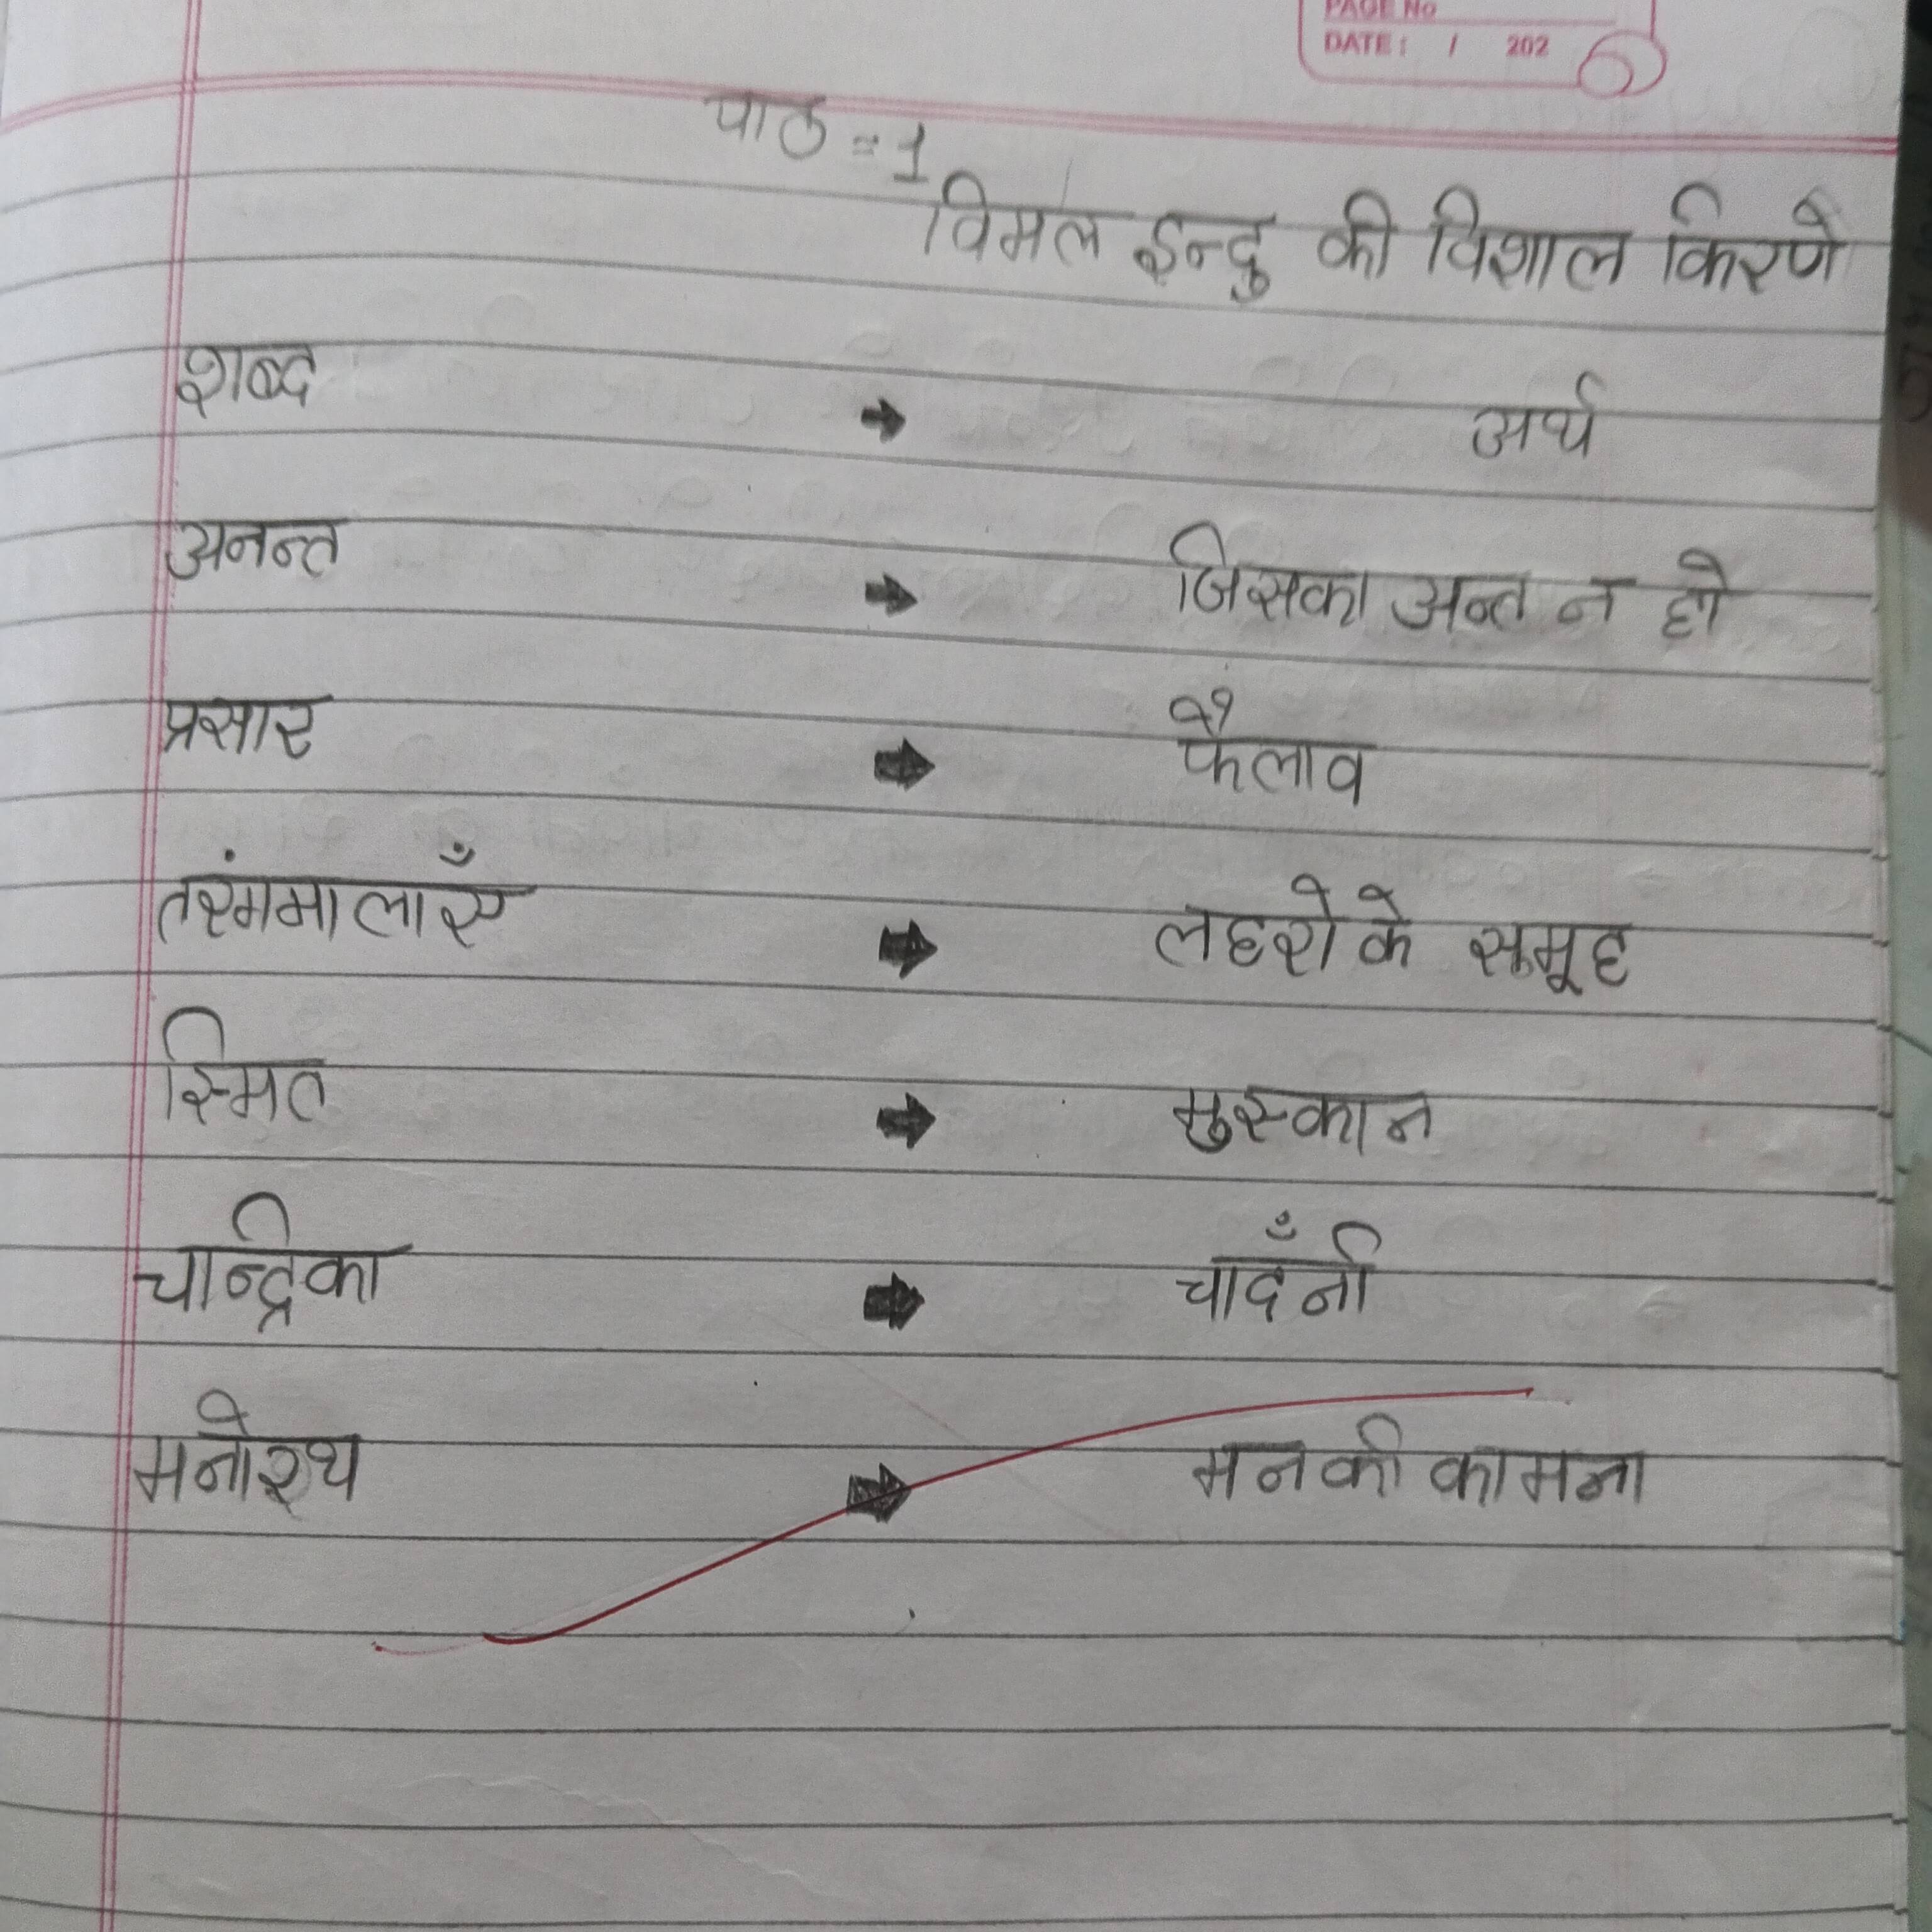 PAGE No
DATE: / 202
पाठ = 1
विमल इन्दु की विशाल किरणे
शब्द → अर्थ
अनन्त → जिसका अन्त न हो
प्रसार → फैलाव
तरंगमालाएँ → लहरो के समूह
स्मित → मुस्कान
चान्द्रिका → चादँनी
मनोरथ → मन की कामना